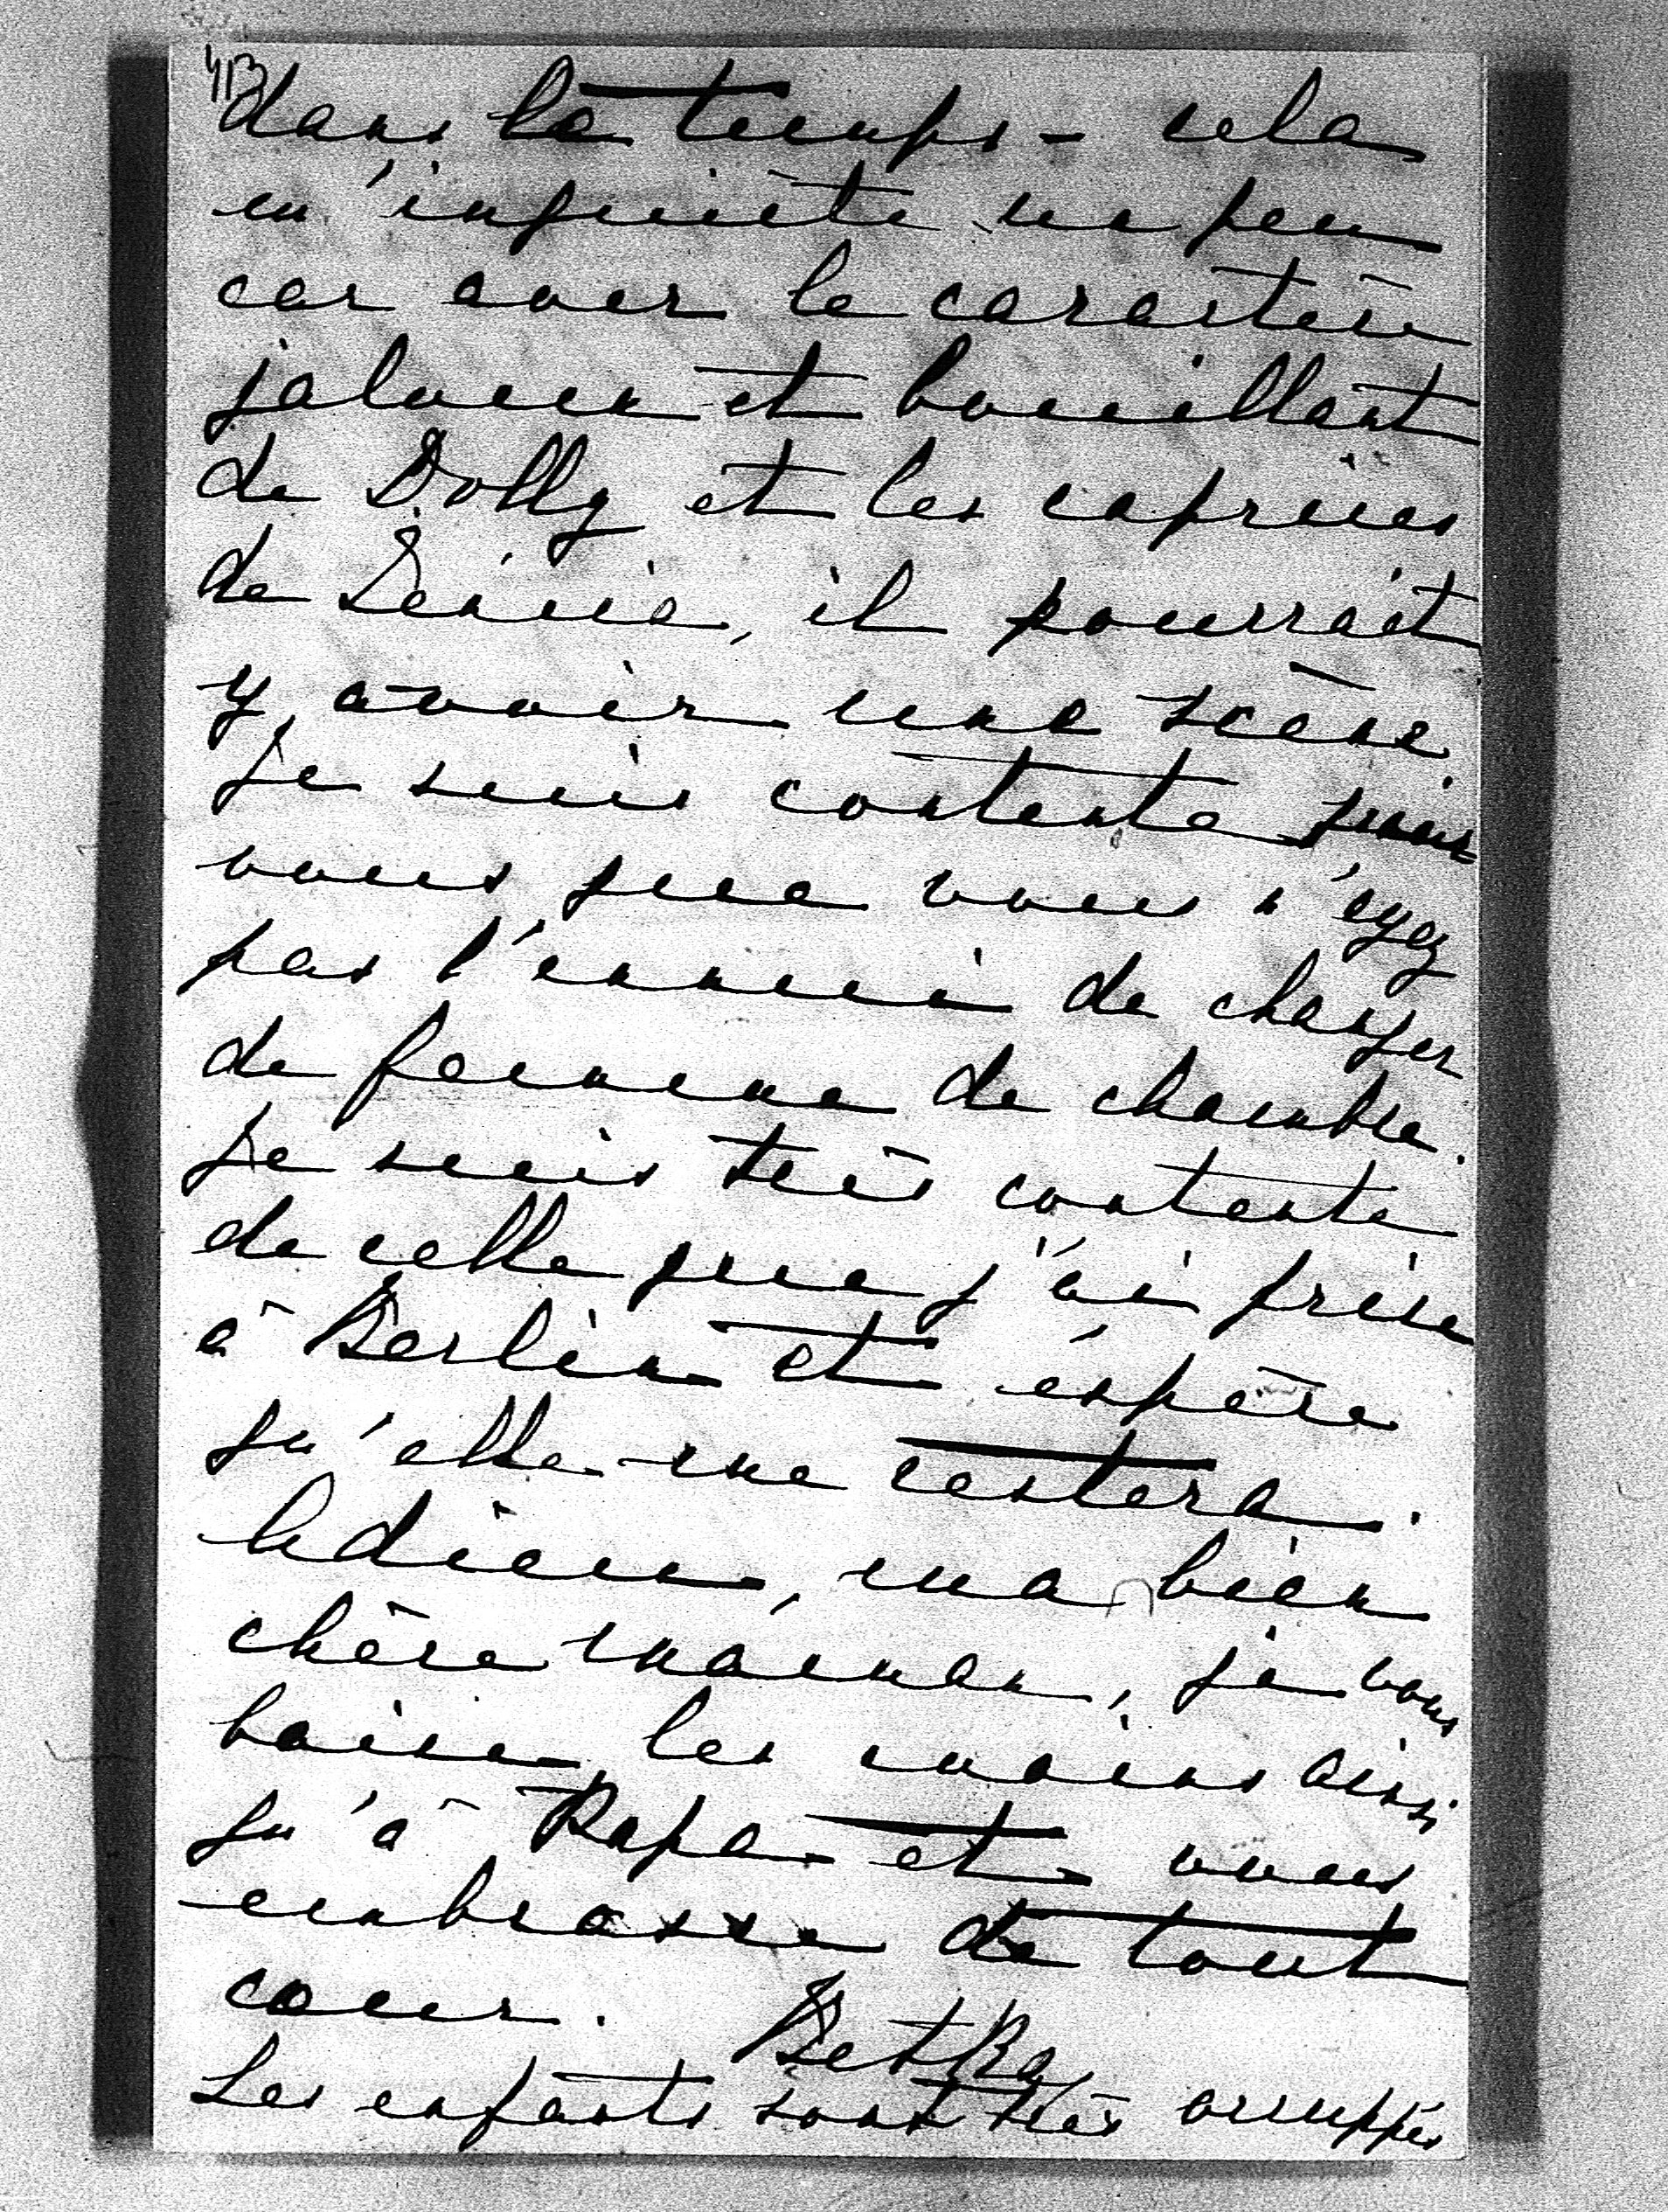 413
dans le temps - cela
m'inquiète un peu
car avec le caractère
jaloux et bouillant
de Dolly et les caprices
de Xénia, il pourrait
y avoir une scène.
Je suis contente pour
vous que vous n'ayez
pas l'ennui de changer
de femme de chambre.
Je suis très contente
de celle que j'ai prise
à Berlin et espère
qu'elle me restera.
Adieu, ma bien
chère maman, je vous
baise les mains ainsi
qu'à Papa et vous
embrasse de tout
coeur. Betka
Les enfants sont très occuppés